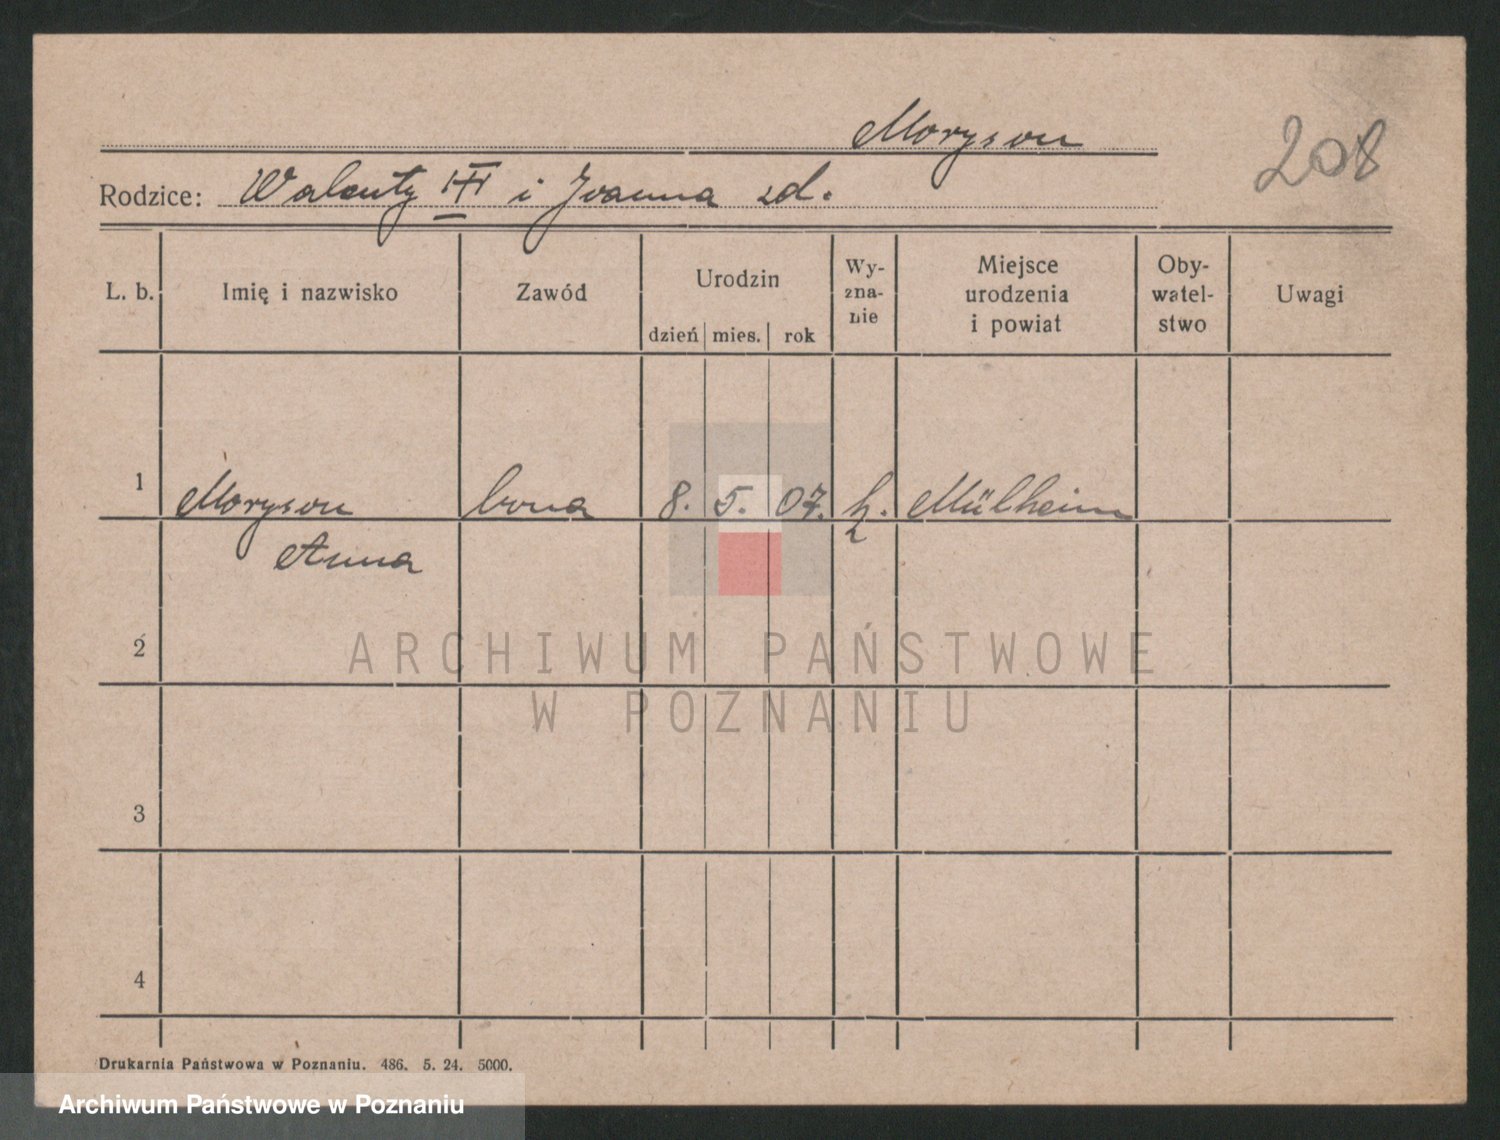 Moryson
208
Rodzice: Walenty III i Joanna zd.
L. b. Imię i nazwisko Zawód Urodzin dzień mies. rok Wy-zna-nie Miejsce urodzenia i powiat Oby-watel-stwo Uwagi
1 Moryson 8. 5. 07. k. Mülheim
Anna
2
ARCHIWUM PAŃSTWOWE
W POZNANIU
3
4
Drukarnia Państwowa w Poznaniu. 486. 5. 24. 5000.
Archiwum Państwowe w Poznaniu